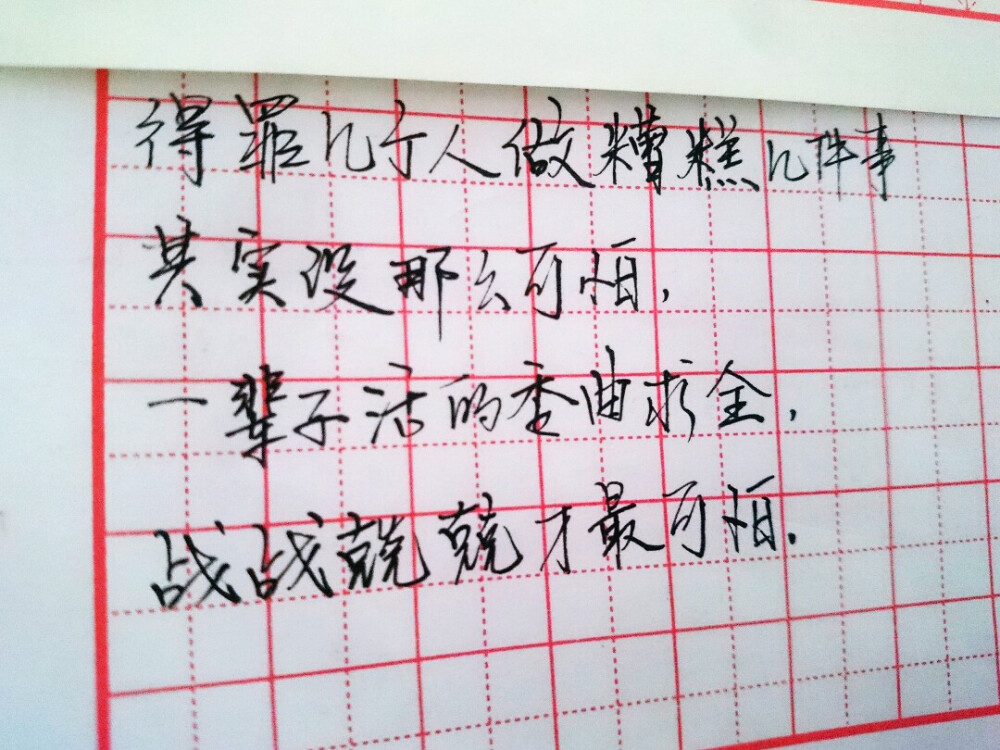 得罪几个人做糟糕几件事
其实没那么可怕，
一辈子活的委曲求全，
战战兢兢才最可怕．